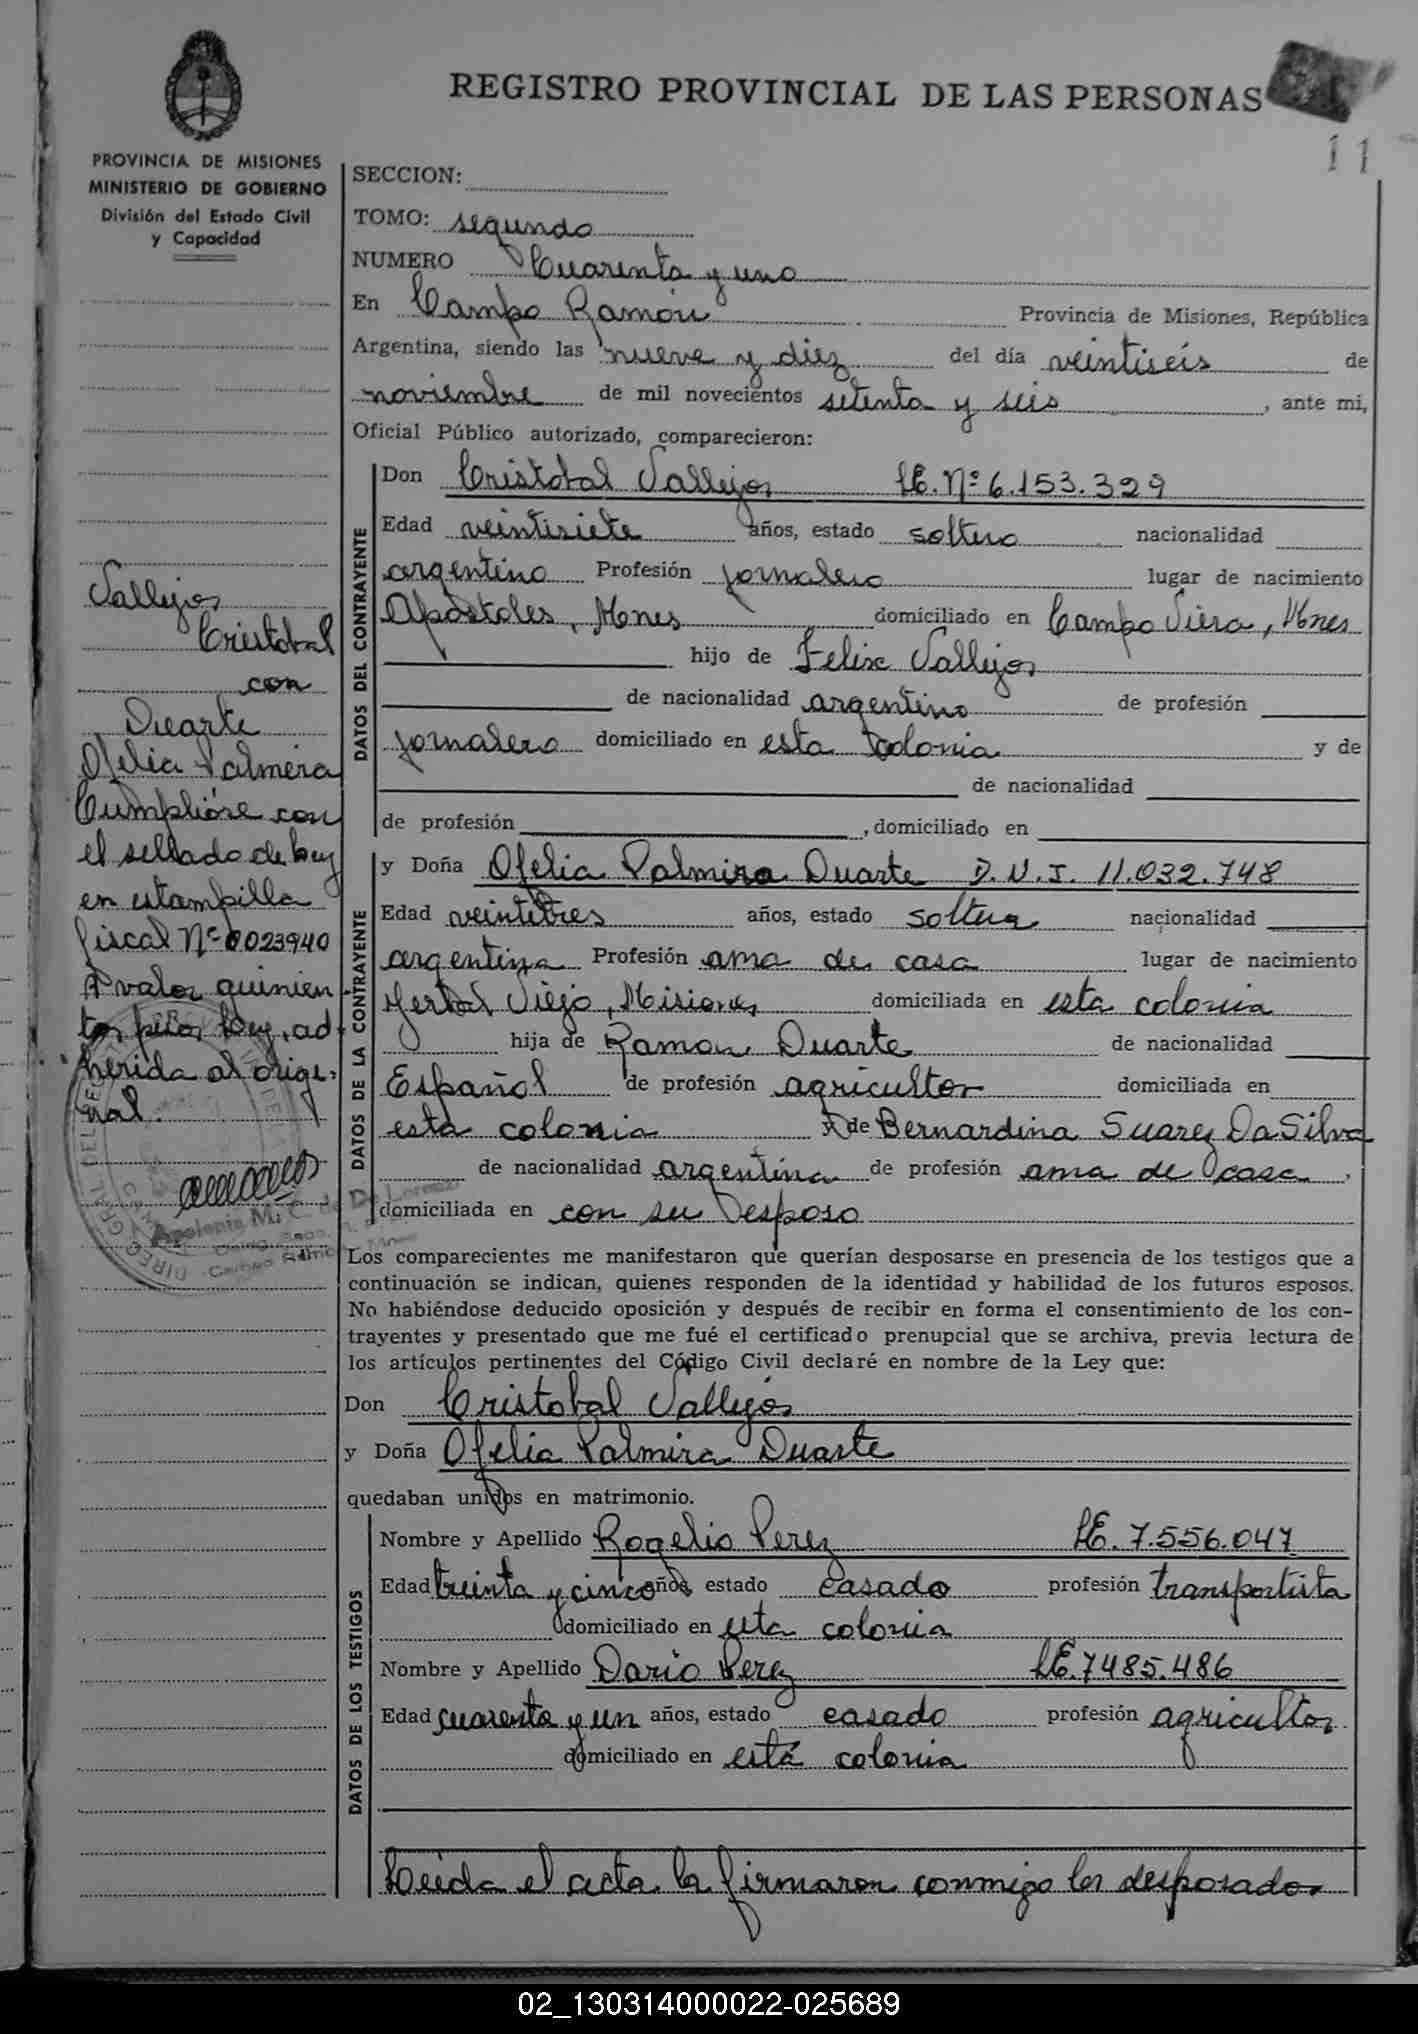 REGISTRO PROVINCIAL DE LAS PERSONAS
11
PROVINCIA DE MISIONES
MINISTERIO DE GOBIERNO
División del Estado Civil
y Capacidad
SECCION:
TOMO: segundo
NUMERO Cuarenta y uno
En Campo Ramón Provincia de Misiones, República
Argentina, siendo las nueve y diez del día veintiseis de
noviembre de mil novecientos setenta y seis, ante mi,
Oficial Público autorizado, comparecieron:
DATOS DEL CONTRAYENTE
Don Cristobal Vallejos LE. Nº 6.153.329
Edad veintisiete años, estado soltero nacionalidad
argentino Profesión jornalero lugar de nacimiento
Apóstoles, Mnes domiciliado en Campo Viera, Mnes
hijo de Felix Vallejos
de nacionalidad argentino de profesión
jornalero domiciliado en esta colonia y de
de nacionalidad
de profesión , domiciliado en
DATOS DE LA CONTRAYENTE
y Doña Ofelia Palmira Duarte D.N.I. 11.032.748
Edad veintitres años, estado soltera nacionalidad
argentina Profesión ama de casa lugar de nacimiento
Yerbal Viejo, Misiones domiciliada en esta colonia
hija de Ramon Duarte de nacionalidad
Español de profesión agricultor domiciliada en
esta colonia y de Bernardina Suarez Da Silva
de nacionalidad argentina de profesión ama de casa,
domiciliada en con su esposo
Los comparecientes me manifestaron que querían desposarse en presencia de los testigos que a
continuación se indican, quienes responden de la identidad y habilidad de los futuros esposos.
No habiéndose deducido oposición y después de recibir en forma el consentimiento de los con-
trayentes y presentado que me fué el certificado prenupcial que se archiva, previa lectura de
los artículos pertinentes del Código Civil declaré en nombre de la Ley que:
Don Cristobal Vallejos
y Doña Ofelia Palmira Duarte
quedaban unidos en matrimonio.
DATOS DE LOS TESTIGOS
Nombre y Apellido Rogelio Perez LE. 7.556.047
Edad treinta y cinco años estado casado profesión transportista
domiciliado en esta colonia
Nombre y Apellido Dario Perez LE. 7485.486
Edad cuarenta y un años, estado casado profesión agricultor
domiciliado en está colonia
Leída el acta la firmaron conmigo los desposados
Vallejos
Cristobal
con
Duarte
Ofelia Palmira
Cumplióse con
el sellado de ley
en estampilla
fiscal Nº 0023940
valor quinien
tos pesos Ley, ad-
herida al origi-
nal.
Apolonia M. C. de De Lorenzo
02_130314000022-025689